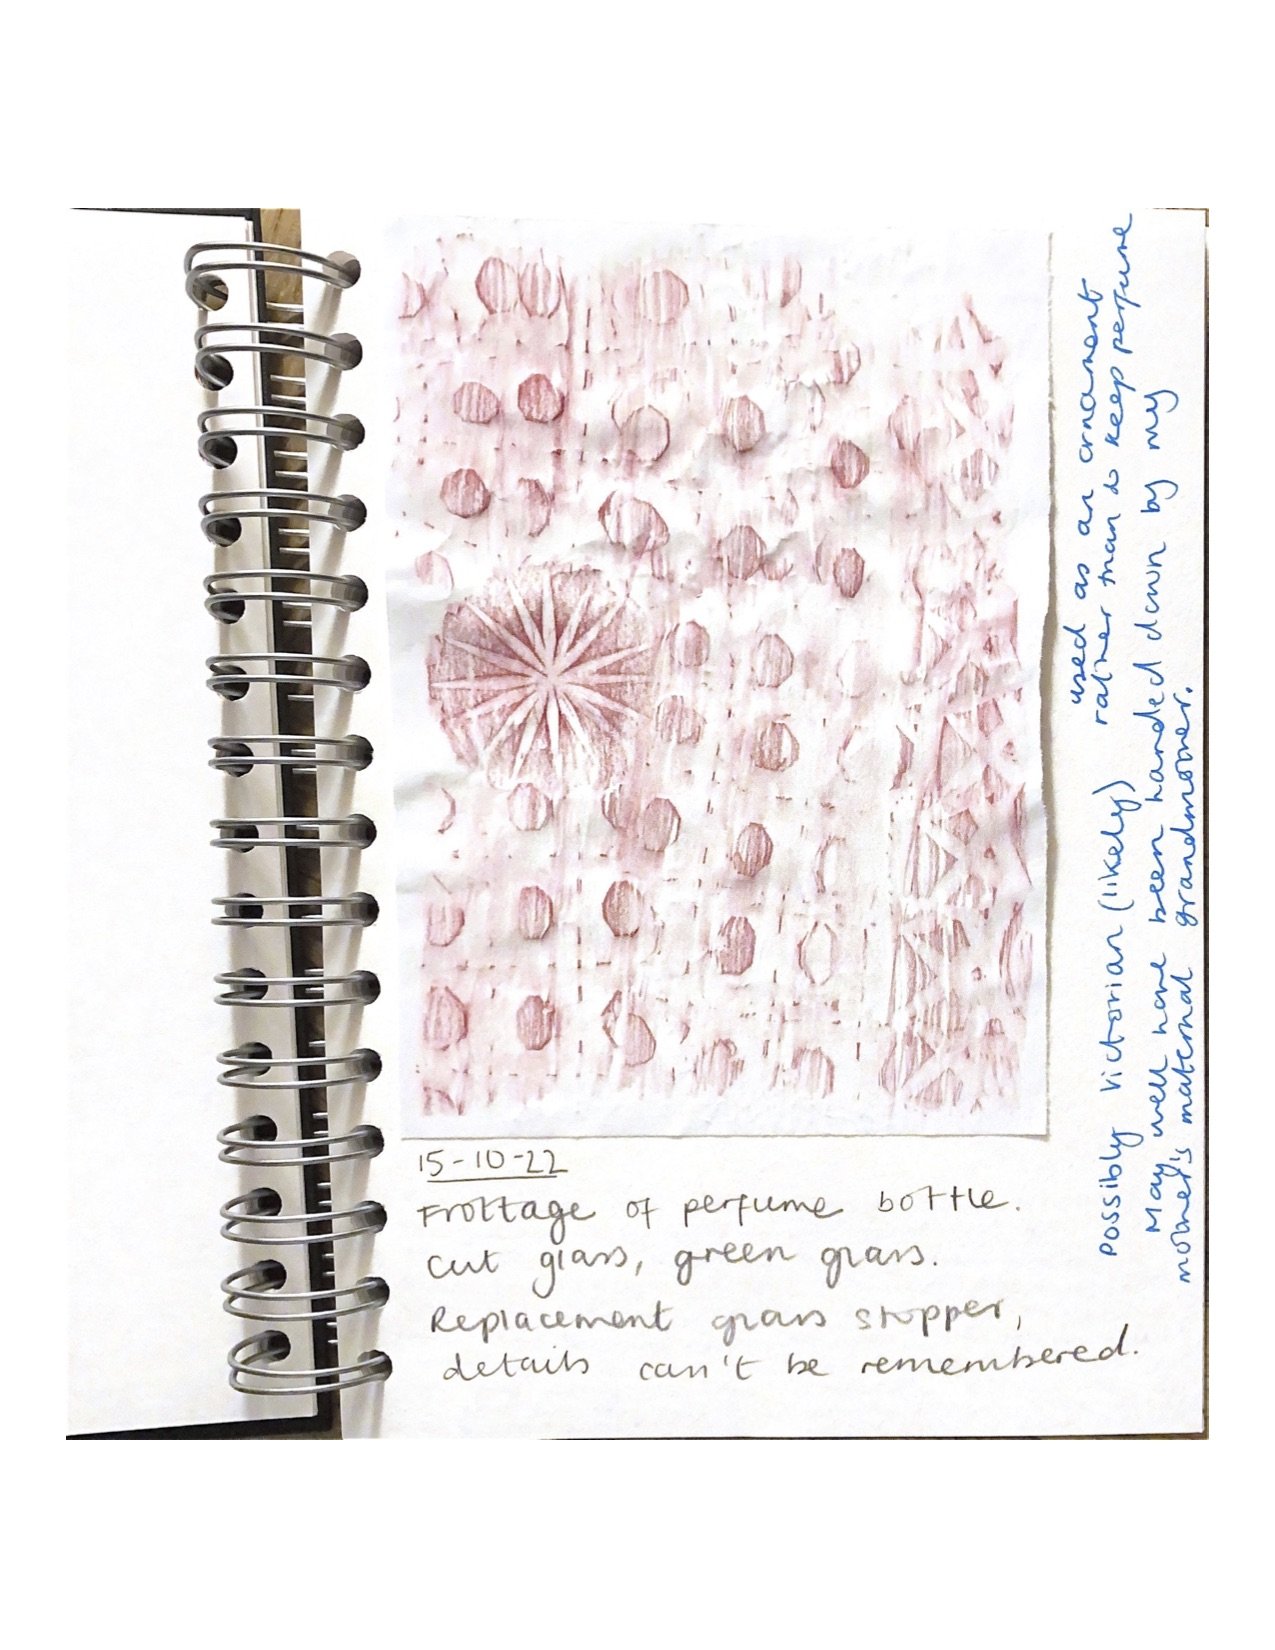 15-10-22
Frottage of perfume bottle.
Cut glass, green glass.
Replacement glass stopper,
details can't be remembered.
used as an ornament
rather than to keep perfume
Possibly Victorian (likely)
May well have been handed down by my
mother's maternal grandmother.